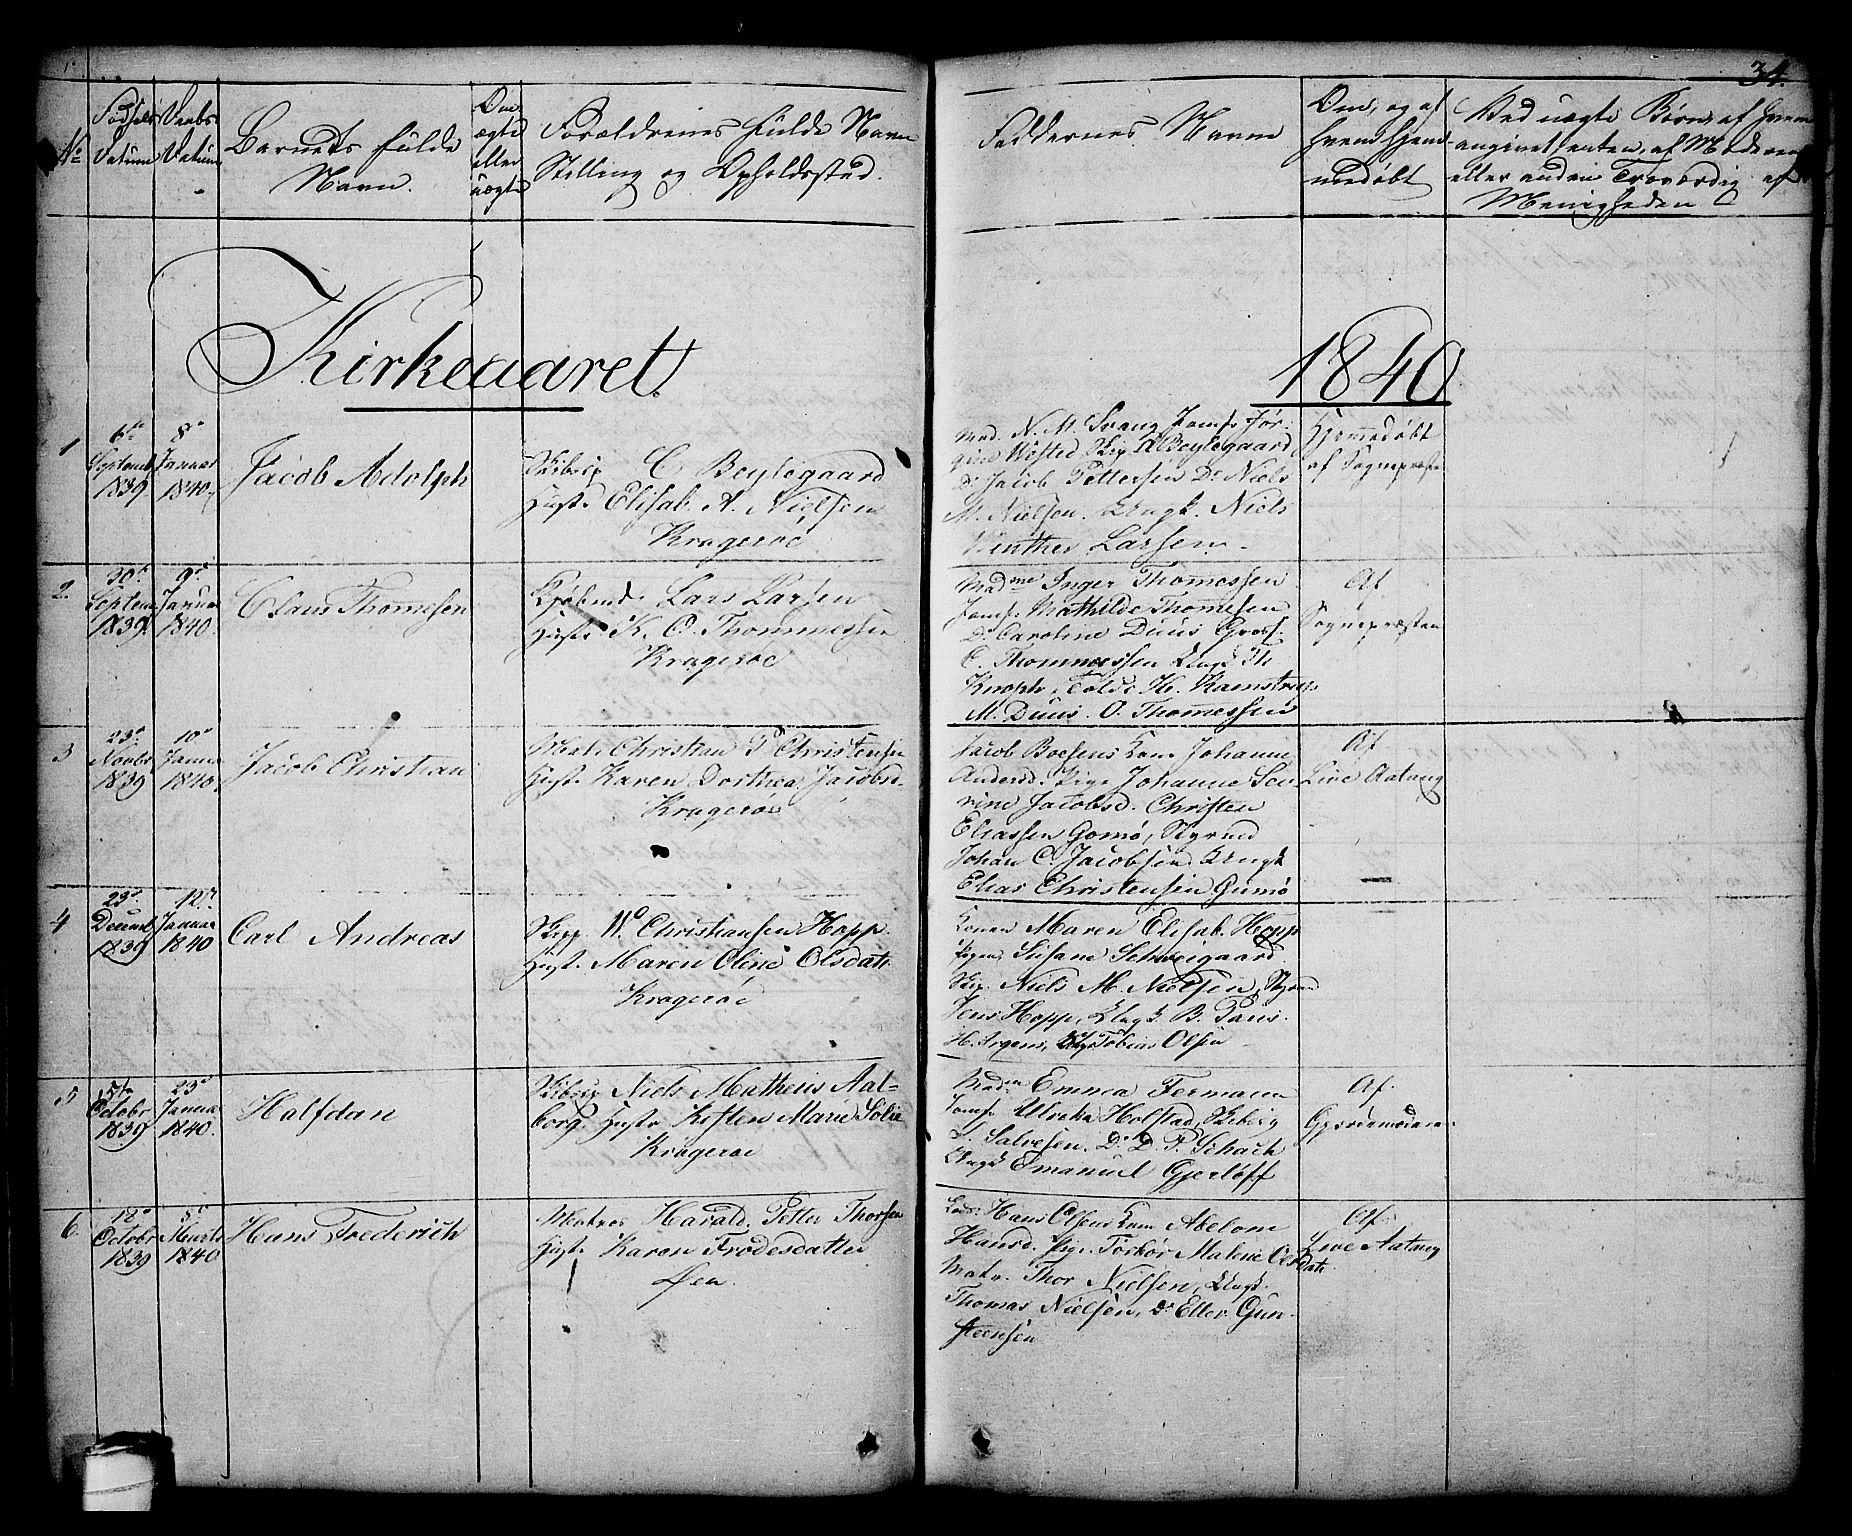 34.
No
Fødsels Datum
Daabs Datum
Barnets fulde Navn.
Om ægte eller uægte
Forældrenes fulde Navn
Stilling og Opholdsstæd.
Faddernes Navne
Om, og af hvem hjemmedøbt
Ved uægte Børn, af hvem
angivet enten, af Moderen
eller anden Troværdig af
Menigheden
Kirkeaaret 1840
1
6te Septemb 1839
8de Januar 1840.
Jacob Adolph
Skibsrp C Beylegaard
Hustr Elisab. A. Nielsen
Kragerøe
Mad. N. M. Svang Jomf. Jør-
gine Wisted Skip A Beylegaard
Do Jacob Pettersen Do Niels
M. Nielsen. Ungk. Niels
Winther Larsen.
Hjemmedøbt
af Sognepræst
2.
30te Septem 1839.
9de Januar 1840.
Claus Thomesen
Kjøbmd. Lars Larsen
Hustr K. C. Thommessen
Kragerøe
Madme Inger Thomessen
Jomf. Mathilde Thomesen
Do Caroline Duus Gross.
C. Thommessen Ungk Th.
Knoph, Told. H. Kamstrup
M. Duus. O. Thomessen
Af
Sognepræsten
3
23de Novbr 1839
10de Januar 1840.
Jacob Christian
Mat. Christian P Christensen
Hust. Karen Dorthea Jacobsd.
Kragerøe
Jacob Boesens Kone Johanne
Andersd. Pige Johanne Se-
rine Jacobsd. Christen
Eliassen Gomø, Styrmd
Johan C. Jacobsen Ungk
Elias Christensen Gumø
Af
Live Aatang
4
23de Decemb 1839
12te Januar 1840
Carl Andreas
Skip. W. Christiansen Hopp
Hust. Maren Oline Olsdatr.
Kragerøe
Konen Maren Elisab. Hopp
Pigen Susane Schweigaard
Skip. Niels M. Nielsen, Styrmd
Jens Hopp, Ungk. B. Paus.
Tobias Olsen
5
5te Octobr 1839
23de Januar 1840.
Halfdan
Skibsrp Niels Matheus Aal-
borg. Hustr Kisten Marie Sølie
Kragerøe
Madm Emma Fermann
Jomf Ulrikke Holstad, Skibsrp
L. Salvesen. Do D. P. Schach
Ungk Emanuel Gjerløff
Af.
Gjordemoderen
6
12te Octobr 1839
8de Marts 1840
Hans Frederich
Matros Harald Petter Thorsen
Hust. Karen Frodesdatter
Øen.
Hans Olsens Kone Abelone
Hansd. Pige Torbør Malene Olsdatr.
Matr. Thor Nielsen, Ungk.
Thomas Nielsen, Do Ellev Gun-
steensen
Af.
Live Aatang